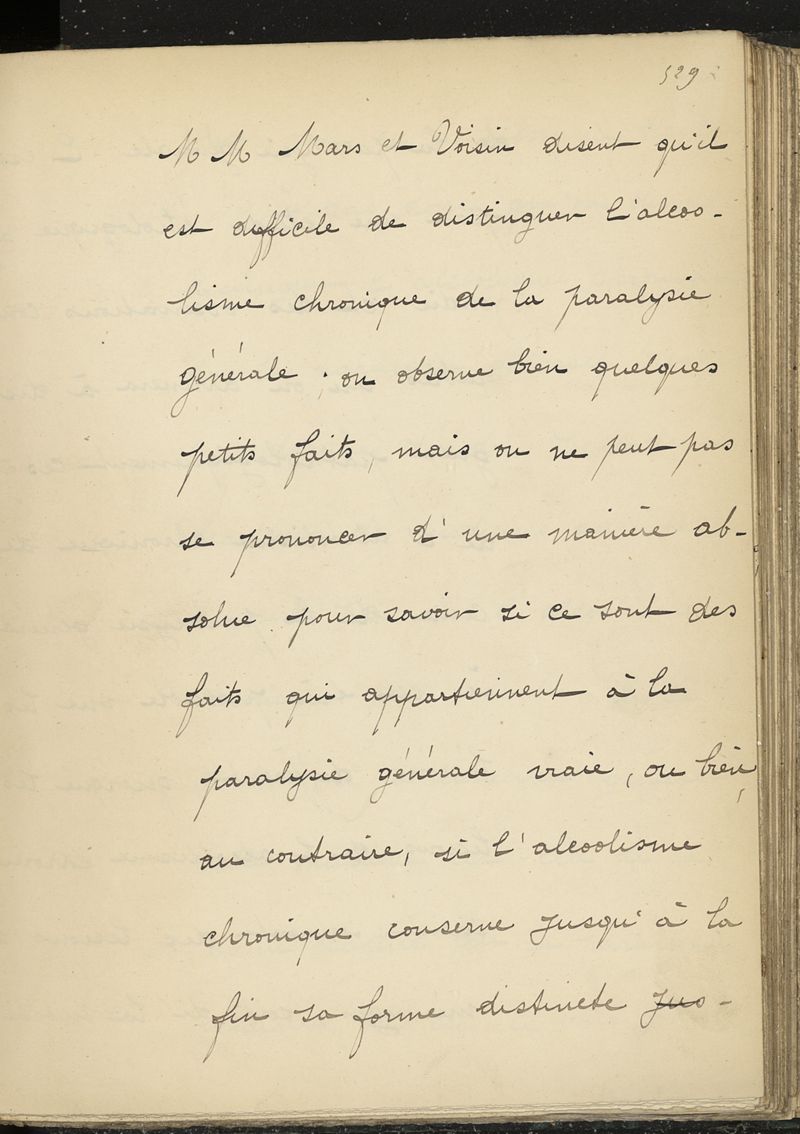 529
M M Mars et Voisin disent qu'il
est difficile de distinguer l'alcoo-
lisme chronique de la paralysie
générale ; on observe bien quelques
petits faits, mais on ne peut pas
se prononcer d'une manière ab-
solue pour savoir si ce sont des
faits qui appartiennent à la
paralysie générale vraie, ou bien,
au contraire, si l'alcoolisme
chronique conserve jusqu'à la
fin sa forme distincte jus-